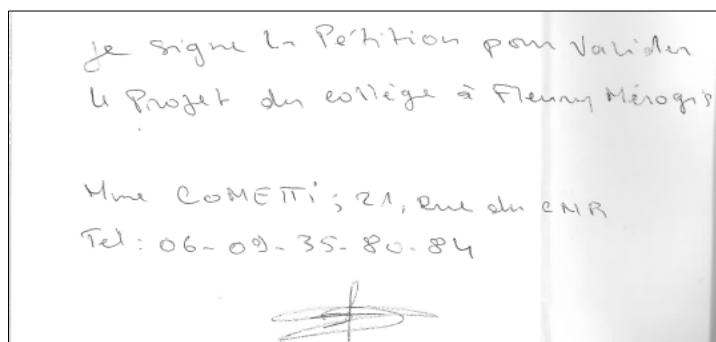 je signe la Pétition pour Valider
le Projet du collège à Fleury Mérogis
Mme COMETTi ; 21, Rue du CNR
Tel : 06-09-35-80-84